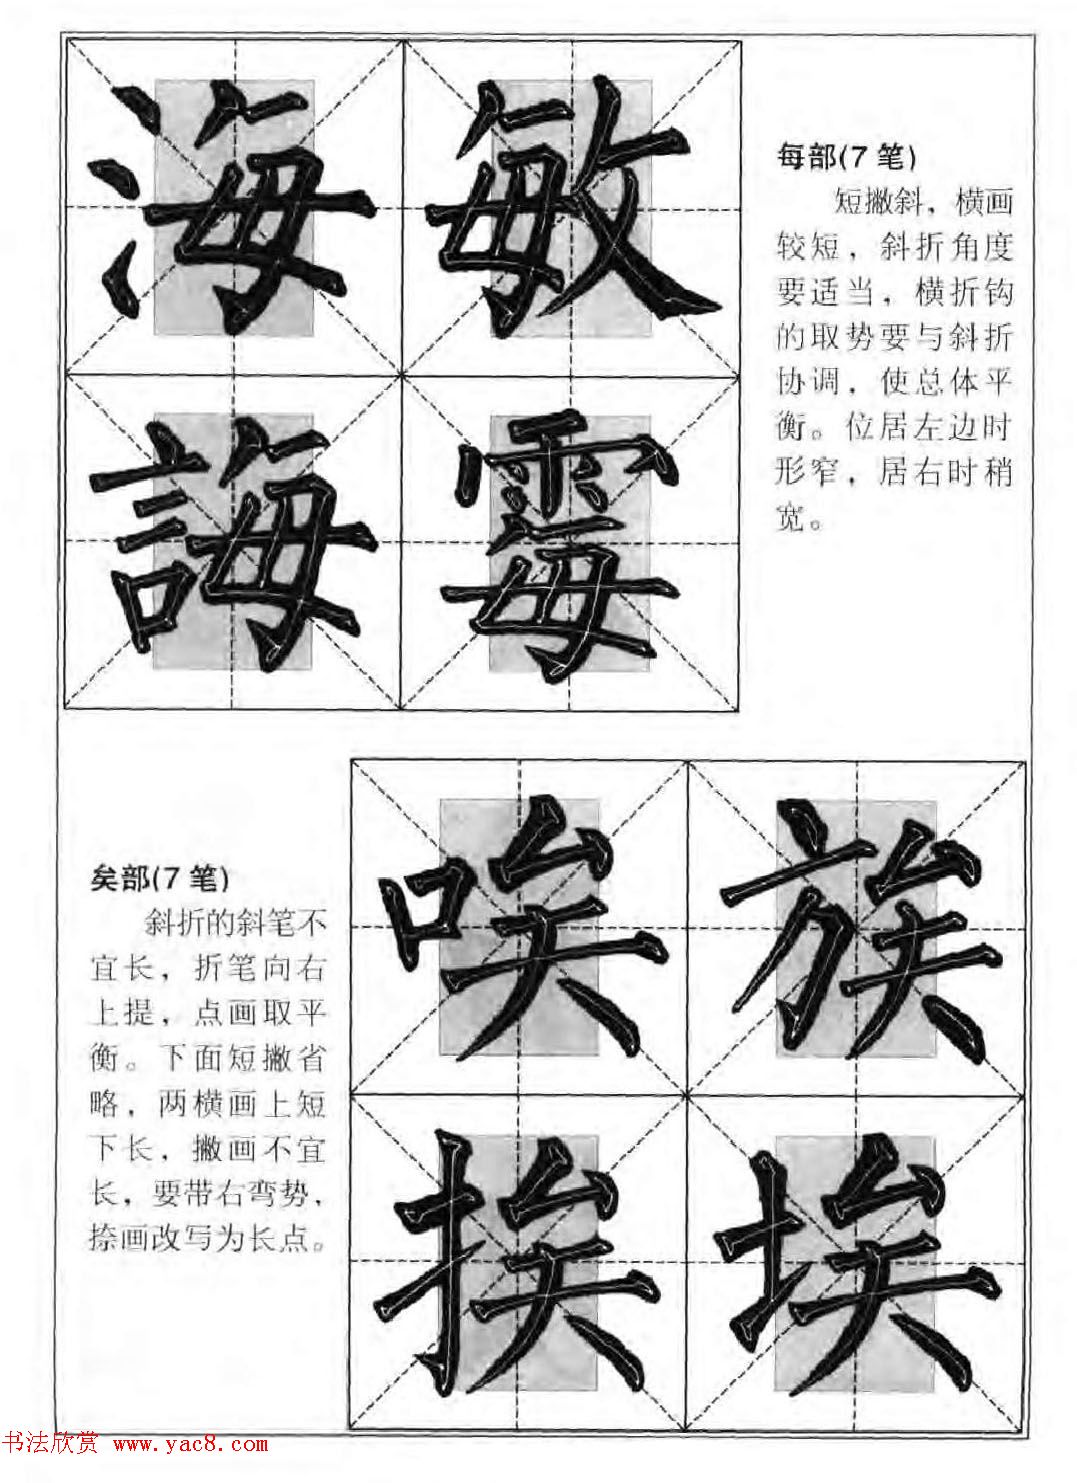 海敏
誨霉
每部(7笔)
短撇斜，横画
较短，斜折角度
要适当，横折钩
的取势要与斜折
协调，使总体平
衡。位居左边时
形窄，居右时稍
宽。
矣部(7笔)
斜折的斜笔不
宜长，折笔向右
上提，点画取平
衡。下面短撇省
略，两横画上短
下长，撇画不宜
长，要带右弯势，
捺画改写为长点。
唉族
挨埃
书法欣赏 www.yac8.com